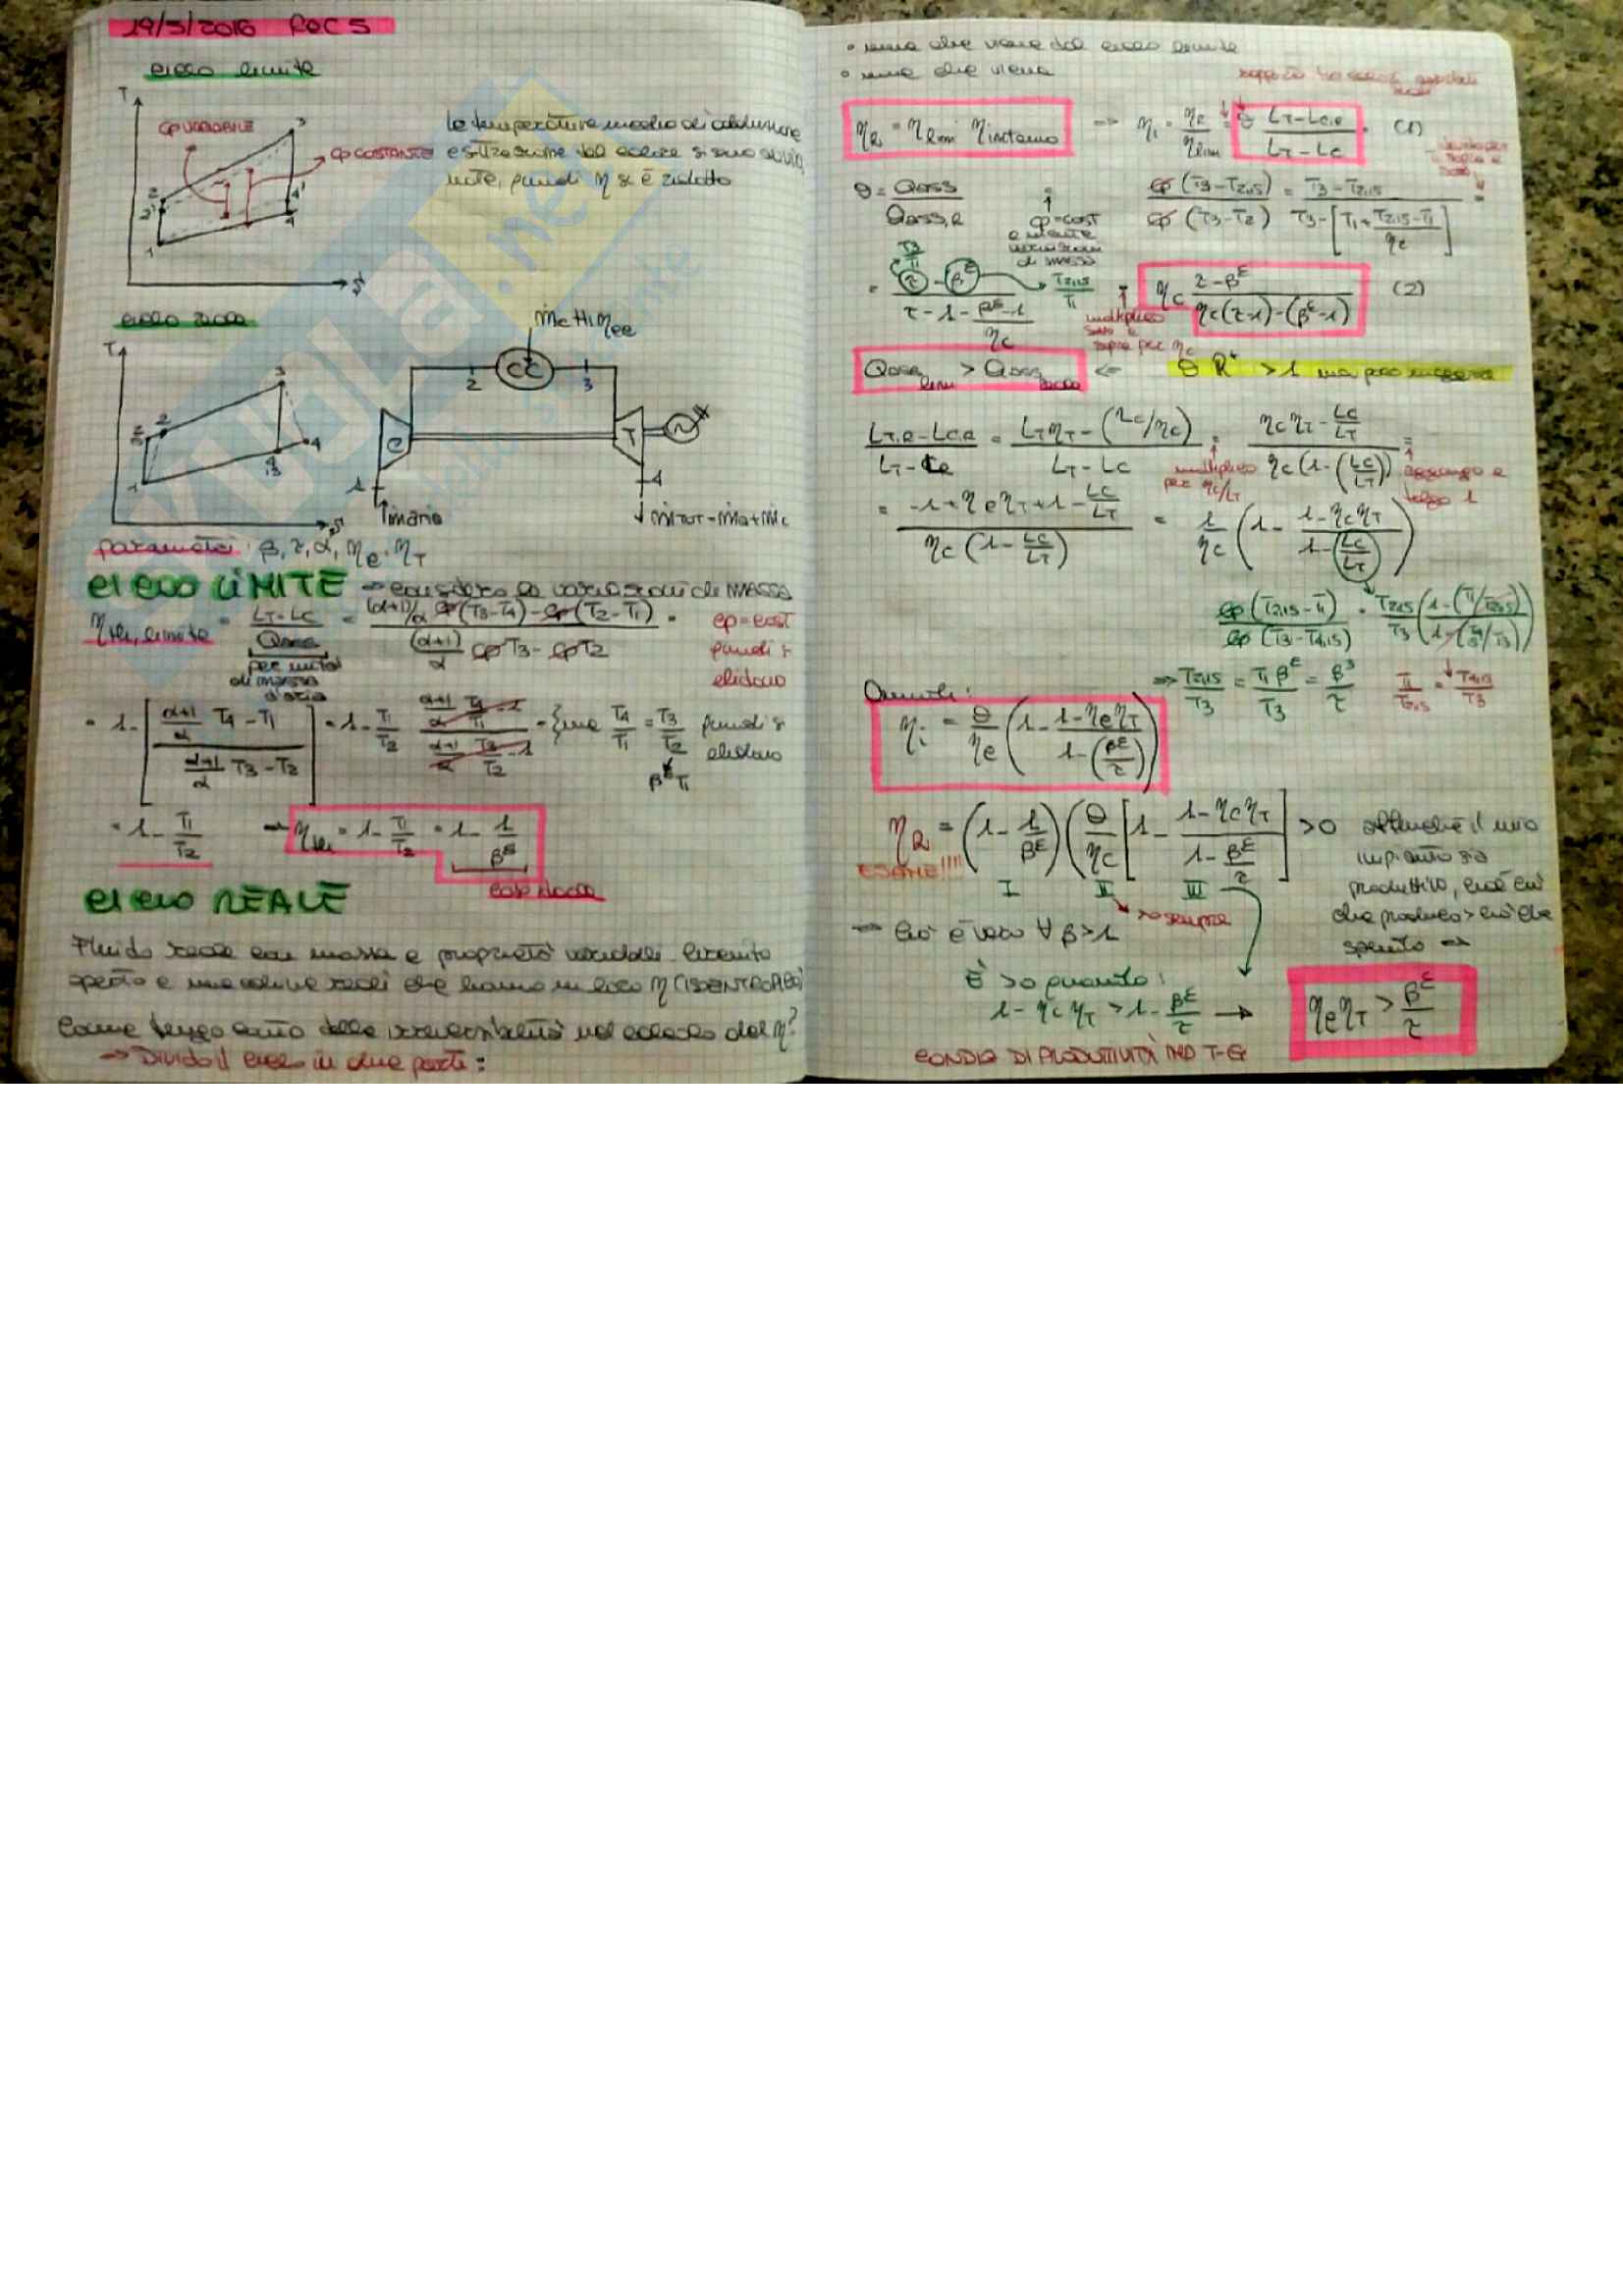 19/5/2016 REC 5
ciclo limite
T
CP VARIABILE
CP COSTANTE
3
2
2'
4'
4
1
S
le temperature medie di adduzione
e sottrazione del calore si sono
quindi η si è ridotto
ciclo reale
T
3
2
4
1
S
ṁc Hi ηcc
2
CC
3
C
T
1
4
ṁaria
ṁTOT = ṁa + ṁc
parametri: β, τ, α, ηc, ηT
CICLO LIMITE → considero le variazioni di MASSA
ηth, limite = (LT - LC)/Qass = ((α+1)/α cp(T3-T4) - cp(T2-T1))/((α+1)/α cpT3 - cpT2) =
per unità
di massa
d'aria
cp=cost
quindi si
elidono
= 1 - [((α+1)/α T4 - T1)/((α+1)/α T3 - T2)] = 1 - T1/T2 ((α+1)/α T4/T1 - 1)/((α+1)/α T3/T2 - 1) = {ma T4/T1 = T3/T2 quindi si
elidono
β^ε T1
= 1 - T1/T2 → ηth = 1 - T1/T2 = 1 - 1/β^ε
CICLO REALE
Fluido reale con massa e proprietà variabili. Circuito
aperto e macchine reali che hanno un loro η (ISOENTROPICO)
Come tengo conto delle irreversibilità nel calcolo del η?
→ Divido il ciclo in due parti:
• una che viene dal ciclo limite
• una che viene
ηR = ηlim ηinterno
⇒ ηi = ηR/ηlim = θ (LT - LC,R)/(LT - LC) (1)
θ = Qass/Qass,R
cp=cost
e niente
variazioni
di massa
cp (T3-T2,is)/cp (T3-T2) = (T3-T2,is)/(T3-[T1+(T2,is-T1)/ηc]) =
T3/T1
= (τ - β^ε)/(τ - 1 - (β^ε-1)/ηc)
T2,is/T1
= ηc (τ-β^ε)/(ηc(τ-1)-(β^ε-1)) (2)
moltiplico
sotto e
sopra per ηc
Qass lim > Qass reale ⇐ θ > 1 ma può essere
(LT,R - LC,R)/(LT - LC) = (LTηT - (LC/ηC))/(LT - LC) = (ηCηT - LC/LT)/(ηC(1-(LC/LT))) =
moltiplico
per ηC/LT
aggiungo e
tolgo 1
= (-1+ηCηT+1-LC/LT)/(ηC(1-LC/LT)) = 1/ηC (1 - (1-ηCηT)/(1-(LC/LT)))
cp(T2,is-T1)/cp(T3-T4,is) = T2,is/T3 ((1-(T1/T2,is))/(1-(T4,is/T3)))
⇒ T2,is/T3 = T1β^ε/T3 = β^ε/τ T1/T2,is = T4,is/T3
Quindi:
ηi = θ/ηc (1 - (1-ηcηT)/(1-(β^ε/τ)))
ηR = (1 - 1/β^ε)(θ/ηC [1 - (1-ηCηT)/(1-β^ε/τ)] > 0 affinché il mio
ESAME!!!!
impianto sia
I II III
produttivo, cioè ciò
>0 sempre
che produco > ciò che
spendo ⇒
→ Ciò è vero ∀ β>1
È >0 quando:
1 - ηCηT > 1 - β^ε/τ → ηcηT > β^ε/τ
CONDIZ DI PRODUTTIVITÀ IMP T-G